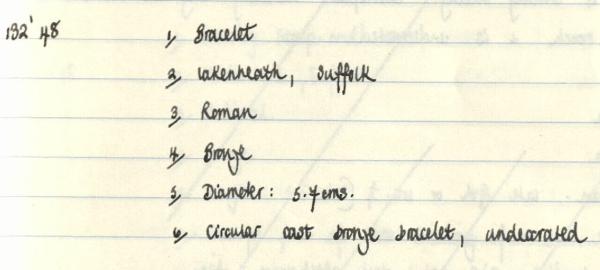 132' 48 1, Bracelet
2, Lakenheath, Suffolk
3, Roman
4, Bronze
5, Diameter: 5.7 cms.
6, Circular cast bronze bracelet, undecorated